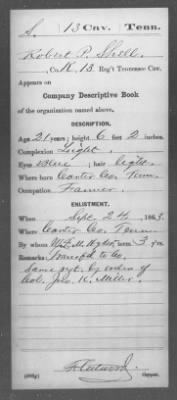 S. 13 Cav. Tenn.
Robert P. Shell
, Co. K, 13 Reg't Tennessee Cav.
Appears on
Company Descriptive Book
of the organization named above.
DESCRIPTION.
Age 21 years; height 6 feet 2 inches.
Complexion Light
Eyes Blue; hair Light
Where born Carter Co. Tenn.
Occupation Farmer
ENLISTMENT.
When Sept. 24, 1863.
Where Carter Co. Tenn
By whom term 3 y'rs
Remarks: Transf'd to Co.
Same regt. by order of
Col. Jno. K. Miller.
Copyist.